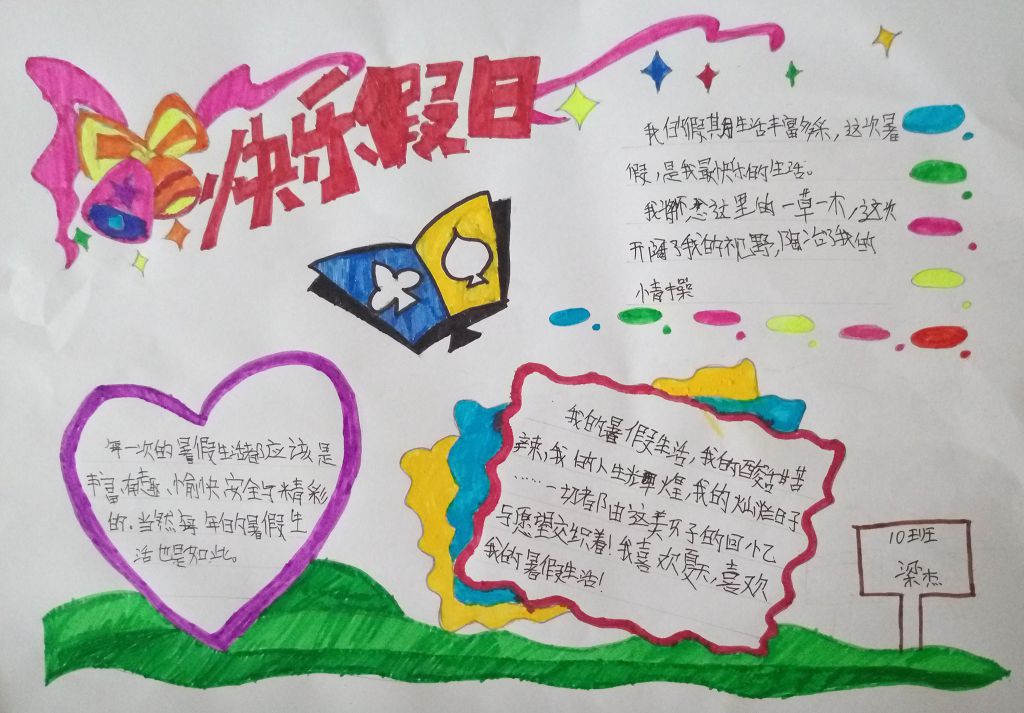 快乐假日
我的假期生活丰富多采，这次暑
假，是我最快乐的生活。
我怀念这里的一草一木，这次
开阔了我的视野，陶冶了我的
情操
每一次的暑假生活都应该是
丰富、有趣、愉快、安全与精彩
的。当然每年的暑假生
活也是如此。
我的暑假生活，我的酸甜苦
辣，我的人生辉煌，我的灿烂日子
……一切都由这美好的回忆
与愿望交织着！我喜欢夏，喜欢
我的暑假生活！
10班
梁杰